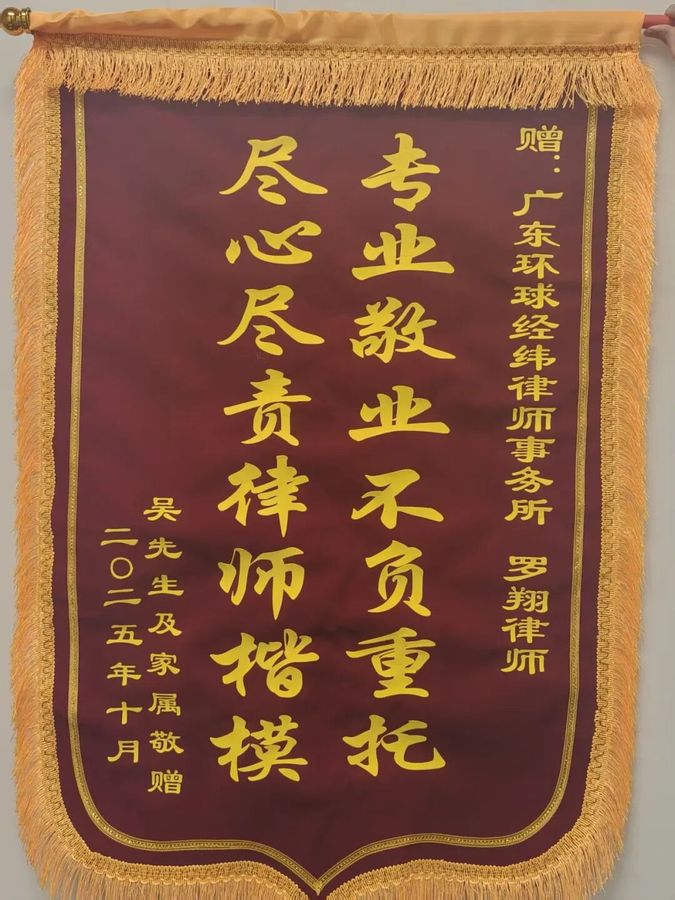 赠：广东环球经纬律师事务所 罗翔律师
专业敬业不负重托
尽心尽责律师楷模
吴先生及家属敬赠
二〇二五年十月